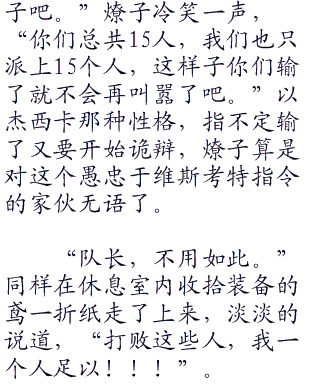 子吧。”燎子冷笑一声，
“你们总共15人，我们也只
派上15个人，这样子你们输
了就不会再叫嚣了吧。”以
杰西卡那种性格，指不定输
了又要开始诡辩，燎子算是
对这个愚忠于维斯考特指令
的家伙无语了。
“队长，不用如此。”
同样在休息室内收拾装备的
鸢一折纸走了上来，淡淡的
说道，“打败这些人，我一
个人足以！！！”。